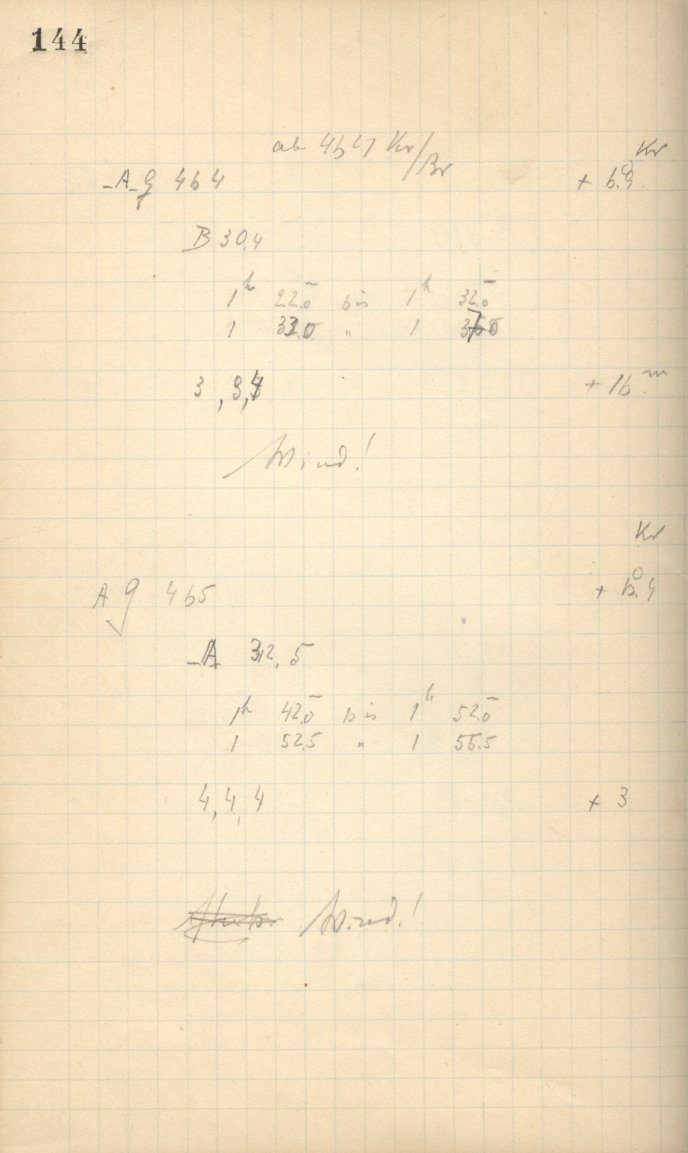 144
ab 4627 Kr/Br
Kr
A g 464 + 6°.9
B 30,4
1h 22.0 bis 1h 32.0
1 33.0 " 1
3, 3, + 16 m
Wind!
Kr
A g 465 + 6°.4
A 32,5
1h 42.0 bis 1h 52.0
1 52.5 " 1 55.5
4, 4, 4 + 3
Wind!